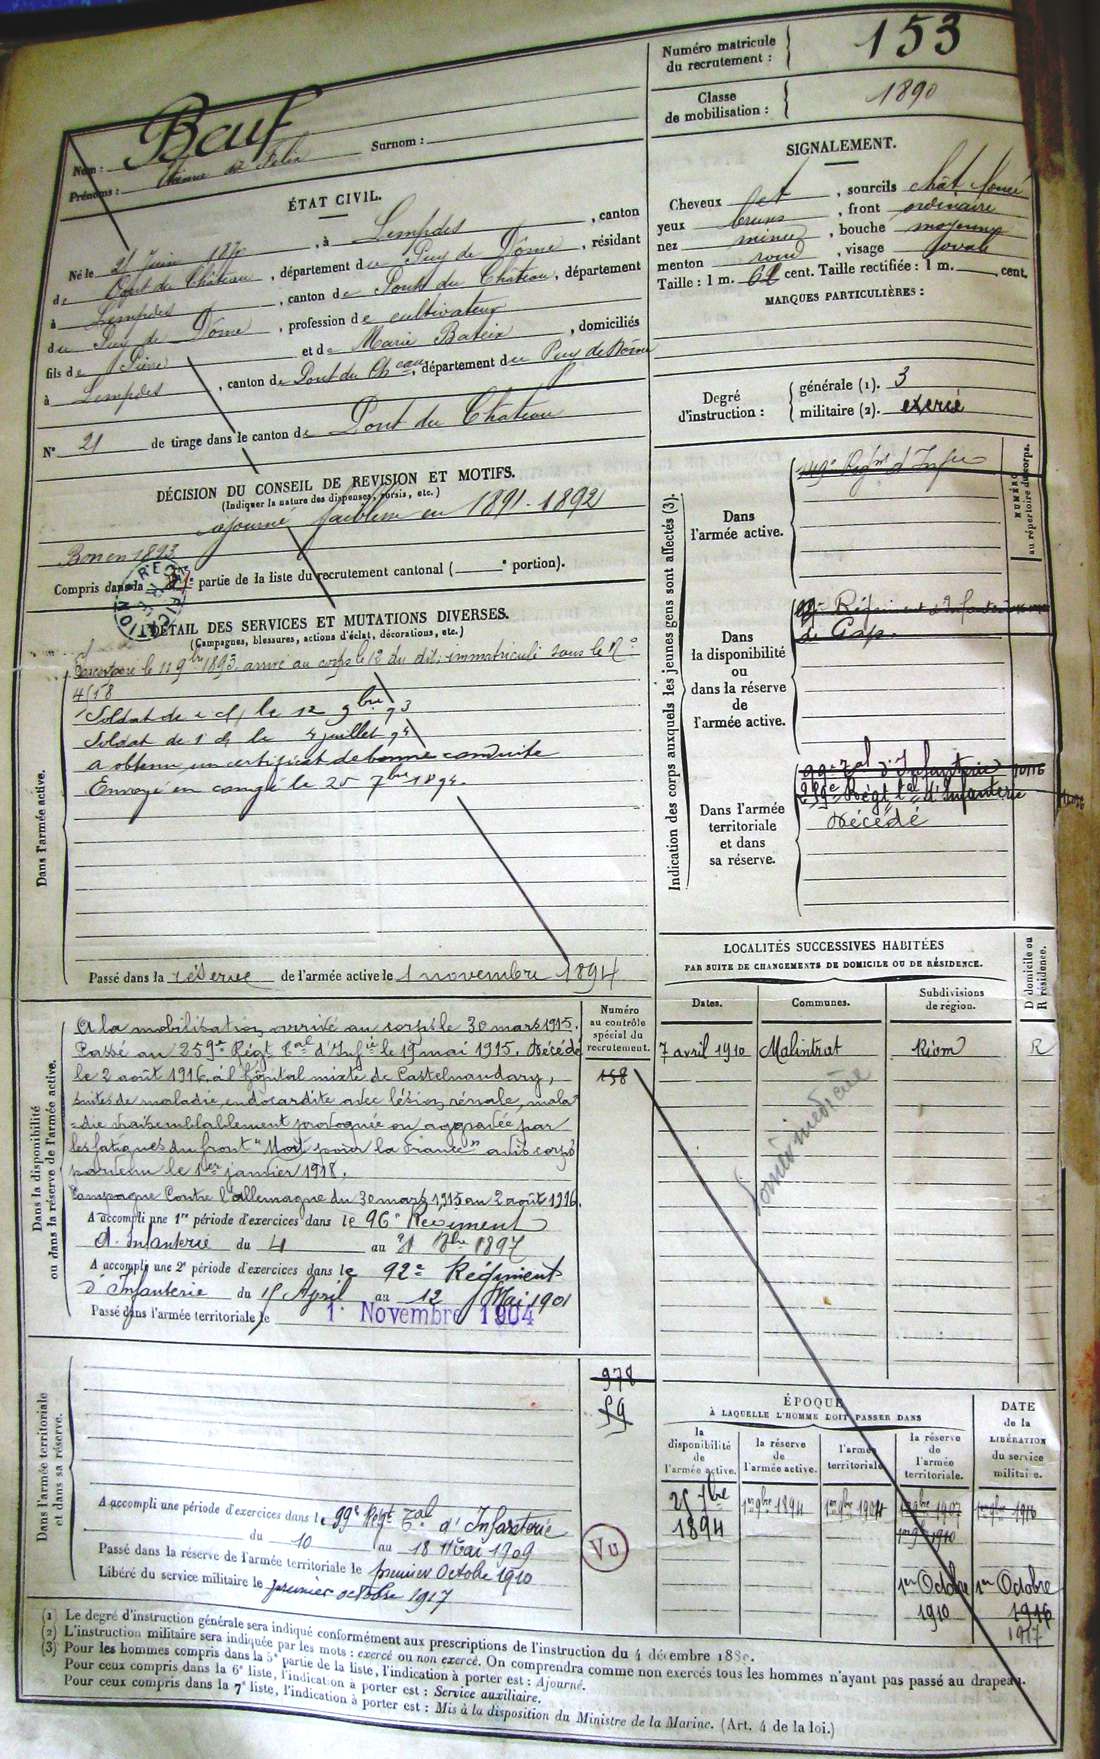 Numéro matricule
du recrutement :
153
Classe
de mobilisation :
1890
Nom : Beuf
Prénoms : Felix
Surnom :
ÉTAT CIVIL.
Né le 21 Juin 1870, à Lempdes, canton
de Pont du Château, département du Puy de Dôme, résidant
à Lempdes, canton de Pont du Château, département
du Puy de Dôme, profession de cultivateur
fils de Pierre et de Marie, domiciliés
à Lempdes, canton de Pont du Ch eau, département du Puy de Dôme
N° 21 de tirage dans le canton de Pont du Château
DÉCISION DU CONSEIL DE REVISION ET MOTIFS.
(Indiquer la nature des dispenses, sursis, etc.)
ajourné faiblesse en 1891-1892
Bon en 1893
Compris dans la partie de la liste du recrutement cantonal ( e portion).
DÉTAIL DES SERVICES ET MUTATIONS DIVERSES.
(Campagnes, blessures, actions d'éclat, décorations, etc.)
Dans l'armée active.
le 11 9bre 1893, arrivé au corps le 12 du dit, immatriculé sous le N°
4158
Soldat de 2 cl, le 12 9bre 93
Soldat de 1 cl, le 4 juillet 94
a obtenu un certificat de bonne conduite
Envoyé en congé le 25 7bre 1894.
Passé dans la réserve de l'armée active le 1 novembre 1894
Dans la disponibilité
ou dans la réserve de l'armée active.
Numéro
au contrôle
spécial du
recrutement.
158
A la mobilisation, arrivé au corps le 30 mars 1915.
Passé au 259e Régt tal d'Infie le 19 mai 1915. Décédé
le 2 août 1916, à l'hôpital mixte de Castelnaudary,
suites de maladie, endocardite avec lésion rénale, mala
=die vraisemblablement provoquée ou aggravée par
les fatigues du front "Mort pour la France" avis corps
parvenu le 1er janvier 1918.
Campagne Contre l'allemagne du 30 mars 1915 au 2 août 1916.
A accompli une 1re période d'exercices dans le 96e Régiment
d'Infanterie du 4 au 31 1897
A accompli une 2e période d'exercices dans le 92e Régiment
d'Infanterie du 15 April au 12 Mai 1901
Passé dans l'armée territoriale le 1 Novembre 1904
Dans l'armée territoriale
et dans sa réserve.
978
59
A accompli une période d'exercices dans le 99e Régt Tal d'Infanterie
du 10 au 18 Mai 1909
Passé dans la réserve de l'armée territoriale le premier Octobre 1910
Libéré du service militaire le premier octobre 1917
Vu
SIGNALEMENT.
Cheveux et, sourcils chât. foncé
yeux bruns, front ordinaire
nez mince, bouche moyenne
menton rond, visage ovale
Taille : 1 m. 62 cent. Taille rectifiée : 1 m. cent.
MARQUES PARTICULIÈRES :
Degré
d'instruction :
générale (1). 3
militaire (2). exercé
Indication des corps auxquels les jeunes gens sont affectés (3).
NUMÉRO
au répertoire du corps.
Dans
l'armée active.
Régnt d'Infie
Dans
la disponibilité
ou
dans la réserve
de
l'armée active.
Régiment d'Infanterie
de Gap.
Dans l'armée
territoriale
et dans
sa réserve.
99e Tal d'Infanterie
259e Régt tal d'Infanterie
Décédé
LOCALITÉS SUCCESSIVES HABITÉES
PAR SUITE DE CHANGEMENTS DE DOMICILE OU DE RÉSIDENCE.
Dates.
Communes.
Subdivisions
de région.
D domicile ou
R résidence.
7 avril 1910 Malintrat Riom R
ÉPOQUE
À LAQUELLE L'HOMME DOIT PASSER DANS
DATE
de la
LIBÉRATION
du service
militaire.
la
disponibilité
de
l'armée active.
la réserve
de
l'armée active.
l'armée
territoriale.
la réserve
de
l'armée
territoriale.
25 7bre
1894
1er 9bre 1894
1er 9bre 1904
1er 9bre 1910
1er 9bre 1916
1er Octobre
1910
1er Octobre
1916
1917
(1) Le degré d'instruction générale sera indiqué conformément aux prescriptions de l'instruction du 4 décembre 1889.
(2) L'instruction militaire sera indiquée par les mots : exercé ou non exercé. On comprendra comme non exercés tous les hommes n'ayant pas passé au drapeau.
(3) Pour les hommes compris dans la 5e partie de la liste, l'indication à porter est : Ajourné.
Pour ceux compris dans la 6e liste, l'indication à porter est : Service auxiliaire.
Pour ceux compris dans la 7e liste, l'indication à porter est : Mis à la disposition du Ministre de la Marine. (Art. 4 de la loi.)